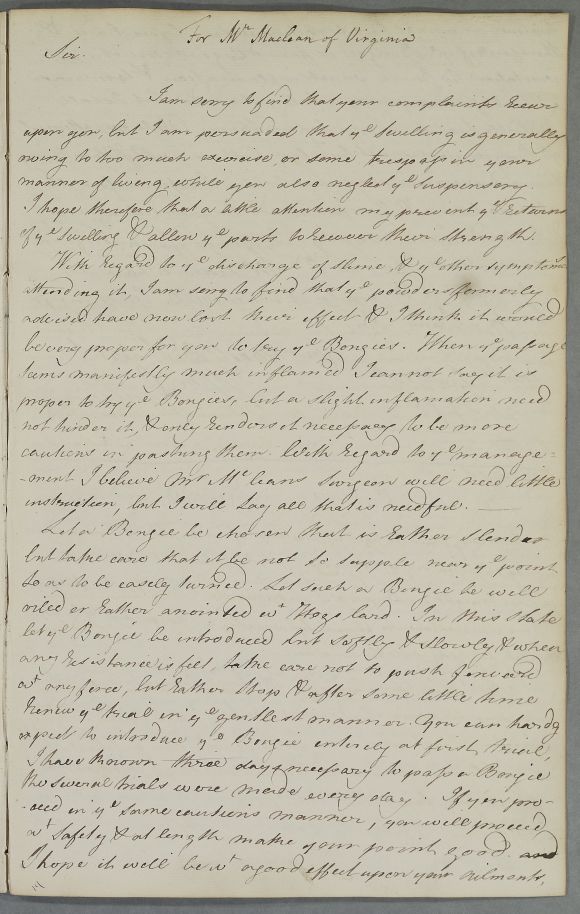 For Mr Maclean of Virginia
Sir.
I am sorry to find that your complaints Recur
upon you, but I am persuaded that ye Swelling is generally
owing to too much exercise, or some trespass in your
manner of living, while you also neglect ye Suspensory.
I hope therefore that a little attention may prevent ye Returns
of ye Swelling & allow ye parts to Recover their Strength.
With Regard to ye discharge of slime, & ye other symptoms
attending it, I am sorry to find that ye powders formerly
advised have now lost their effect & I think it would
be very proper for you to try ye Bougies. When ye passage
seems manifestly much inflamed I cannot say it is
proper to try ye Bougies, but a slight inflamation need
not hinder it, & only Renders it necessary to be more
cautious in pushing them. With Regard to ye manage=
-ment I believe Mr McLeans Surgeon will need little
instruction, but I will Say all that is needful. —
Let a Bougie be chosen that is Rather Slender
but take care that it be not so supple near ye point
so as to be easely turned. Let such a Bougie be well
oiled or Rather anointed wt Hogs lard. In this State
let ye Bougie be introduced but Softly & slowly & when
any Resistance is felt, take care not to push forward
wt any force, but Rather Stop & after some little time
Renew ye trial in ye gentlest manner. You can hardly
expect to introduce ye Bougie entirely at first trial,
I have known three days necessary to pass a Bougie
tho several trials were made every day. If you pro-
-ceed in ye same cautious manner, you will proceed
wt Safety & at length make your point good. and
I hope it will be wt a good effect upon your ailments.